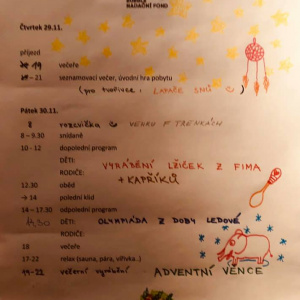 NADAČNÍ FOND
Čtvrtek 29.11.
příjezd
19 večeře
- 21 seznamovací večer, úvodní hra pobytu
(pro tvořivce: LAPAČE SNŮ)
Pátek 30.11.
8 rozcvička VENKU V TRENKÁCH
8 – 9.30 snídaně
10 - 12 dopolední program
DĚTI: VYRÁBĚNÍ LŽIČEK Z FIMA
RODIČE: + KAPŘÍKŮ
12.30 oběd
→ 14 polední klid
14 – 17.30 odpolední program
14,30 DĚTI: OLYMPIÁDA Z DOBY LEDOVÉ
RODIČE:
18 večeře
17-22 relax (sauna, pára, vířivka..)
19-22 večerní vyrábění ADVENTNÍ VĚNCE